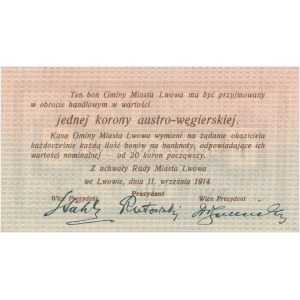 Ten bon Gminy Miasta Lwowa ma być przyjmowany
w obrocie handlowym w wartości
jednej korony austro-węgierskiej.
Kasa Gminy Miasta Lwowa wymieni na żądanie okaziciela
każdocześnie każdą ilość bonów na banknoty, odpowiadające ich
wartości nominalnej - od 20 koron począwszy.
Z uchwały Rady Miasta Lwowa
we Lwowie, dnia 11. września 1914.
Wice Prezydent Prezydent Wice Prezydent
Rutowski